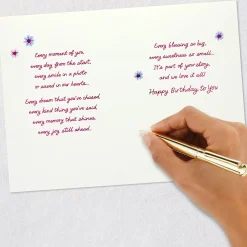 Every moment of you,
every day from the start,
every smile in a photo
or saved in our hearts...
Every dream that you've chased,
every kind thing you've said,
every memory that shines,
every joy still ahead.
Every blessing so big,
every sweetness so small...
It's part of your story,
and we love it all!
Happy Birthday to You